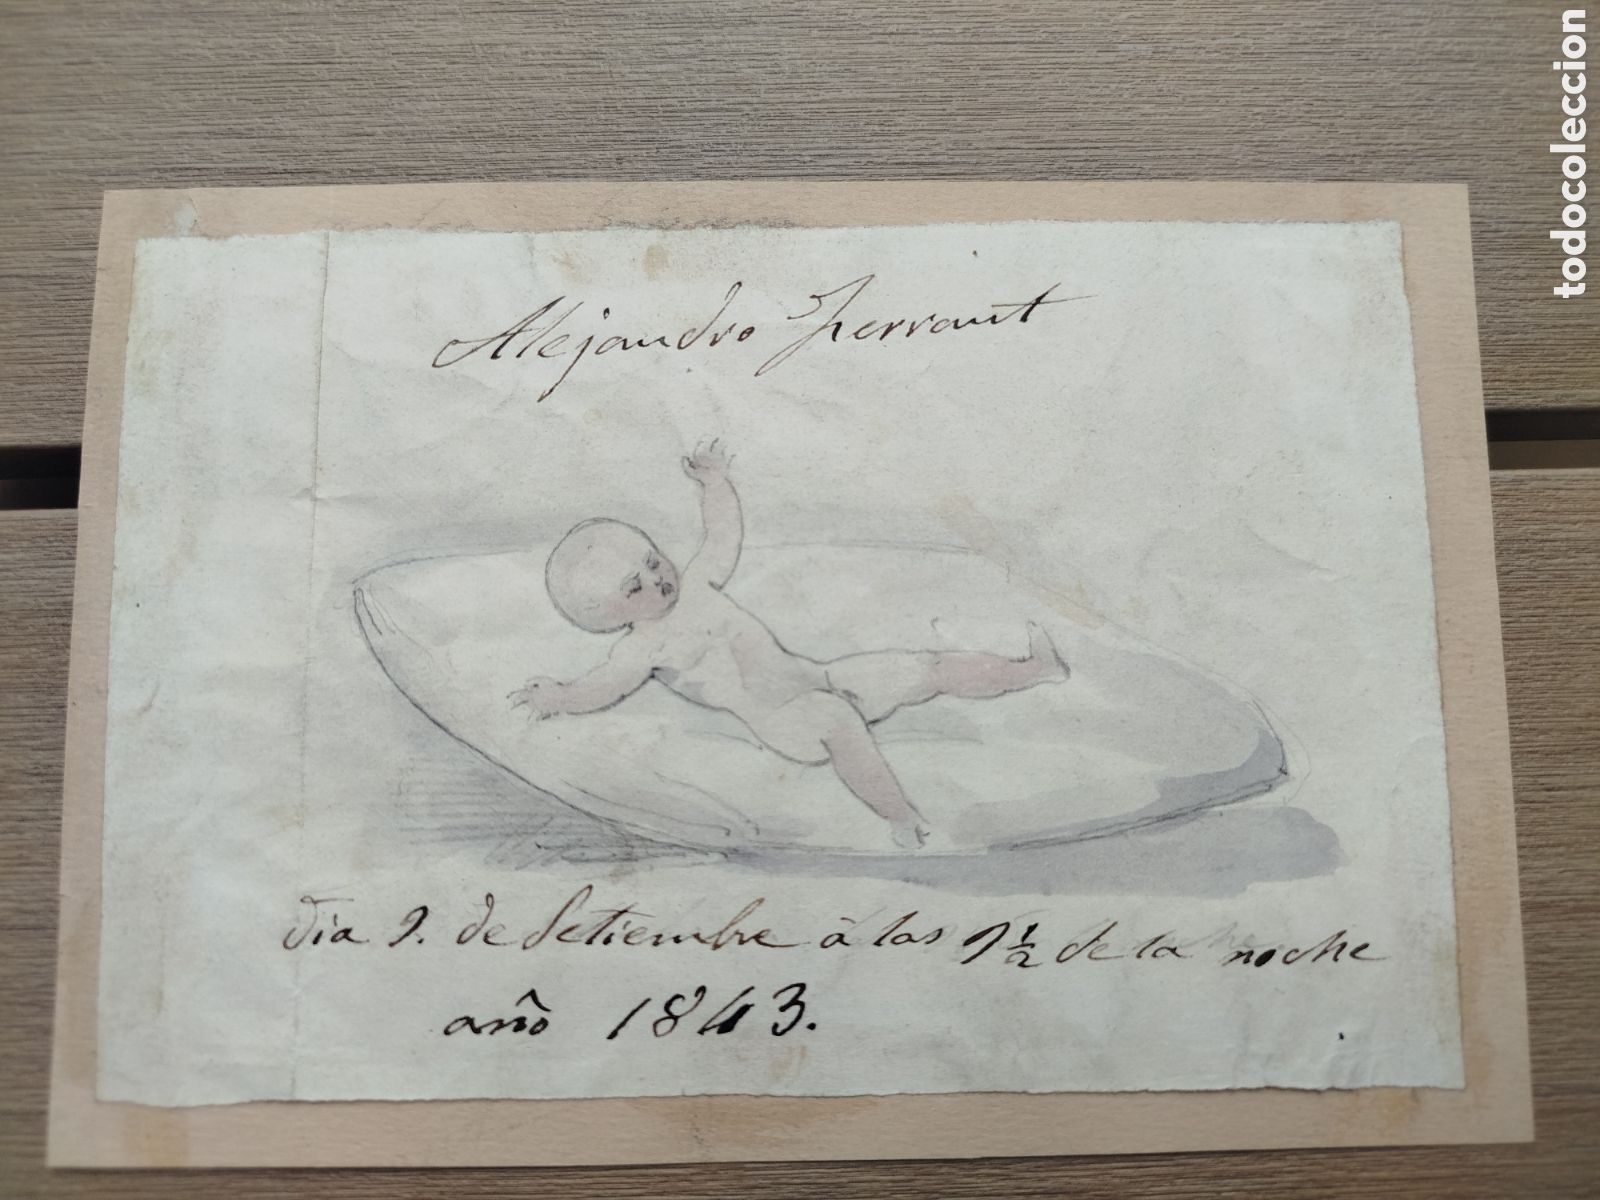 Alejandro Ferrant
dia 9. de Setiembre à las 9 1/2 de la noche
año 1843.
todocoleccion